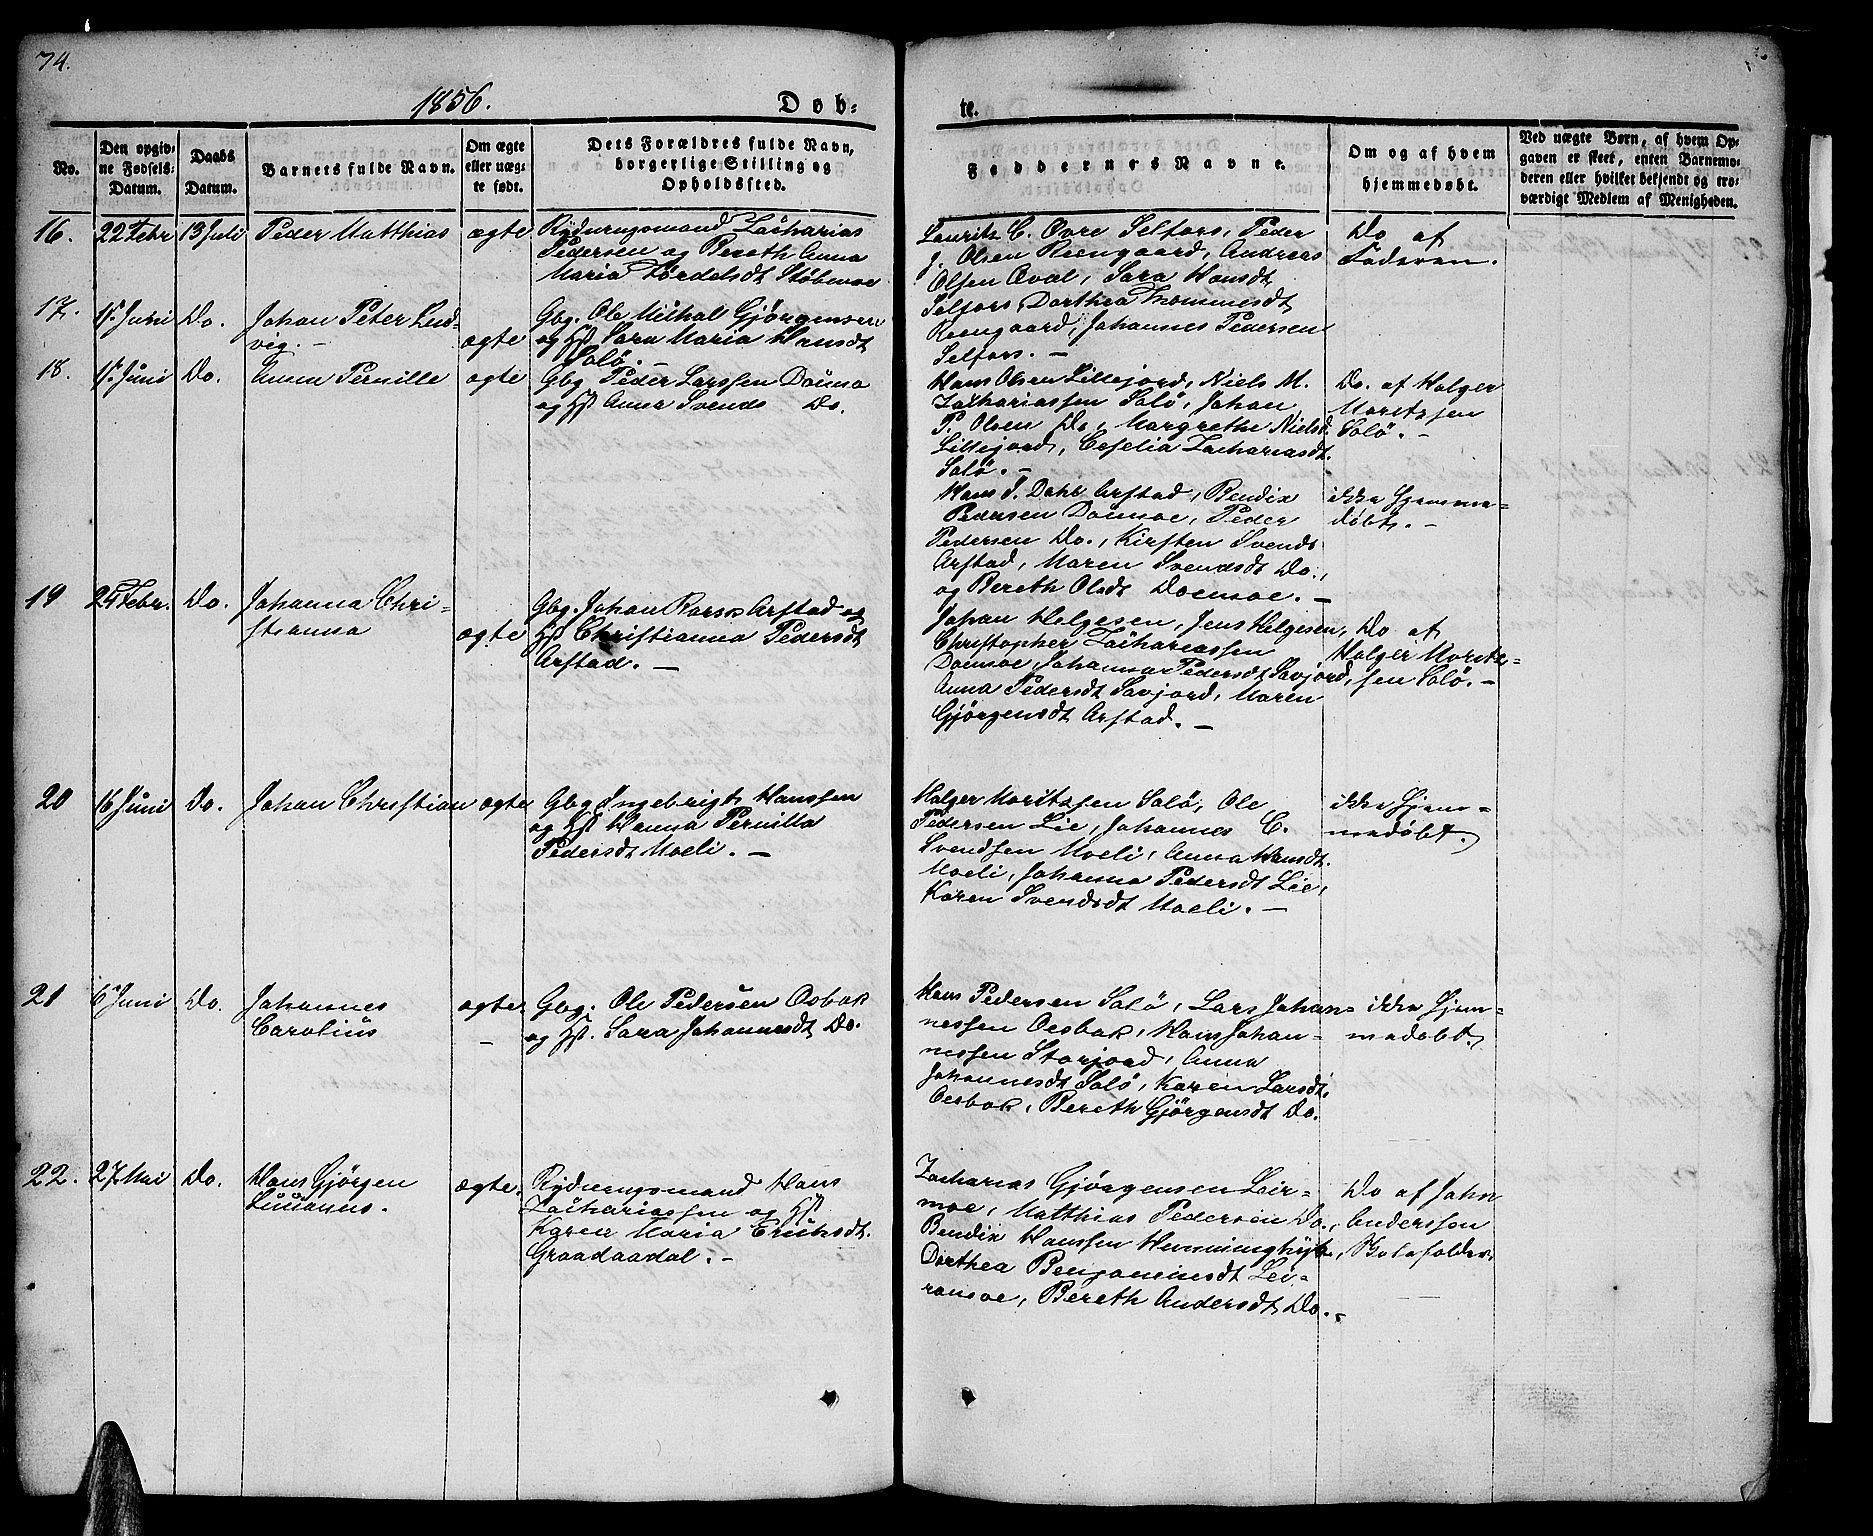 74.
1856.
Døb-
te.
No.
Den opgiv-
ne Fødsels-
Datum.
Daabs
Datum.
Barnets fulde Navn.
Om ægte
eller uæg-
te født.
Dets Forældres fulde Navn,
borgerlige Stilling og
Opholdssted.
Faddernes Navne.
Om og af hvem
hjemmedøbt.
Ved uægte Børn, af hvem Op-
gaven er skeet, enten Barnemo-
deren eller hvilket bekjendt og tro-
værdigt Medlem af Menigheden.
16. 22 Febr 13 Juli Peder Matthias ægte Rydningsmand Zacharias
Pedersen og Bereth Anna
Maria Tordelsdt Stobmoe
Laurits C. Øvre Selfors, Peder
J. Olsen Reengaard, Anders
Olsen Hansdt
Selfors, Dorthea Thommesdt
Reengaard, Johannes Pedersen
Selfors. —
Do af
Faderen.
17. 15 Juni Do. Johan Peter Lud-
vig. — ægte
Gbg. Ole Mikal Gjörgensen
og Hst Sara Maria Hansdt
Solö. —
Hans Olsen Lillejord, Niels M.
Zachariassen Solö, Johan
P. Olsen Do, Margrethe Nielsd.
Lillejord, Ceselia Zachariasdt.
Solö. —
Do. af Holger
Moritssen
Solö. —
18. 15 Juni Do. Anna Pernille ægte Gbg. Peder Larssen
og Hst Anna Svends Do.
Hans T. Dahl Arstad, Bendix
Pedersen Doemoe, Peder
Pedersen Do., Kirsten Svends
Arstad, Maren Svendsdt Do.,
og Bereth Olsdt Doemoe. —
ikke Hjemme-
döbt. —
19 25 Febr. Do. Johanna Chri-
stianna ægte
Gbg. Johan Arstad og
Hst Christianna Pedersdt
Arstad. —
Johan Helgesen, Jens Helgesen,
Christopher Zachariassen
Doemoe, Johanna Pedersdt Savjord,
Anna Pedersdt Savjord, Maren
Gjörgensdt Arstad. —
Do af
Holger Morits-
sen Solö. —
20 16 Juni Do. Johan Christian ægte Gbg Ingebrigt Hanssen
og Hst Hanna Pernilla
Pedersdt Moeli. —
Holger Moritssen Solö, Ole
Pedersen Lie, Johannes C.
Svendsen Moeli, Anna Hansdt.
Moeli, Johanna Pedersdt Lie,
Karen Svendsdt Moeli. —
ikke Hjem-
medöbt.
21 6 Juni Do. Johannes
Carolius ægte.
Gbg. Ole Pedersen Osbak
og Hst. Sara Johannesdt Do.
Hans Pedersen Solö, Lars Johan-
nessen Oesbak, Hans Johan-
nessen Storjord, Anna
Johannesdt Solö, Karen Larsdt.
Oesbak, Bereth Gjörgensdt Do.
ikke Hjem-
medöbt.
22. 27 Mai Do. Hans Gjörgen
ægte. Rydningsmand Hans
Zachariassen og Hst
Karen Maria Eriksdt.
Graadaadal. —
Zacharias Gjörgensen Leir-
moe, Matthias Pedersen Do.,
Bendix Hanssen
Dorthea Benjaminsdt Lei-
romoe, Bereth Andersdt Do. —
Do af John
Anderssen